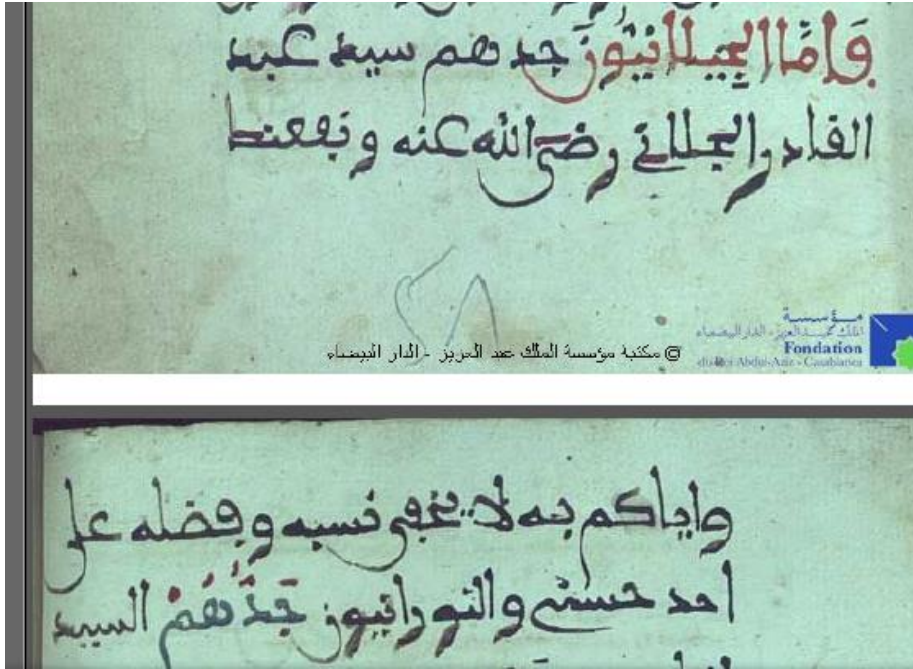 وَأَمَّا الجِيلانِيُّونَ جدهم سيد عبد
القادر الجيلاني رضي الله عنه ونفعنا
٢٨
@ مكتبة مؤسسة الملك عبد العزيز - الدار البيضاء
مؤسسة
الملك عبد العزيز - الدار البيضاء
Fondation
du Roi Abdul-Aziz - Casablanca
واياكم به لا يخفى نسبه وفضله على
احد حسني والنورانيون جَدُّهُمْ السيد